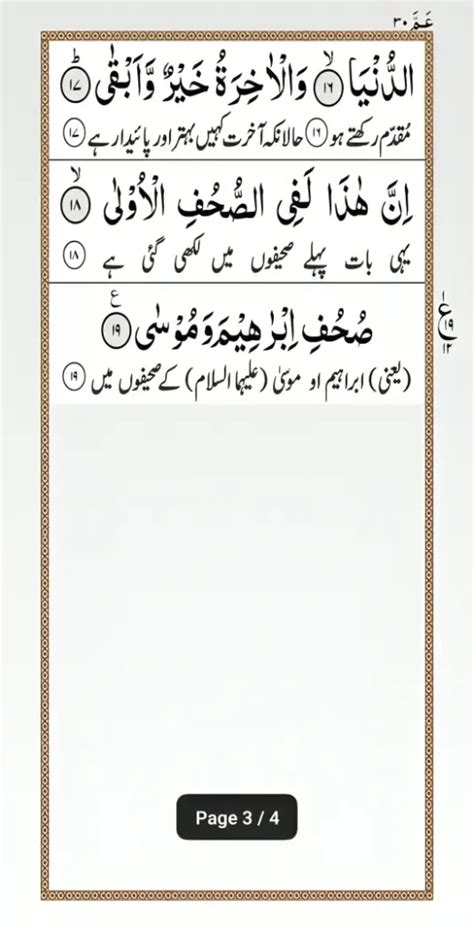 عَمَّ ٣٠
الدُّنْيَا ۙ۝١٦ وَالْاٰخِرَةُ خَيْرٌ وَّاَبْقٰى ؕ۝١٧
مُقدّم رکھتے ہو ۝١٦ حالانکہ آخرت کہیں بہتر اور پائیدار ہے ۝١٧
اِنَّ هٰذَا لَفِى الصُّحُفِ الْاُوْلٰى ۙ۝١٨
یہی بات پہلے صحیفوں میں لکھی گئی ہے ۝١٨
صُحُفِ اِبْرٰهِيْمَ وَمُوْسٰى ۝١٩ ع
ع ١٩ ١٢
(یعنی) ابراہیم او موسٰیٰ (علیہا السلام) کے صحیفوں میں ۝١٩
Page 3 / 4